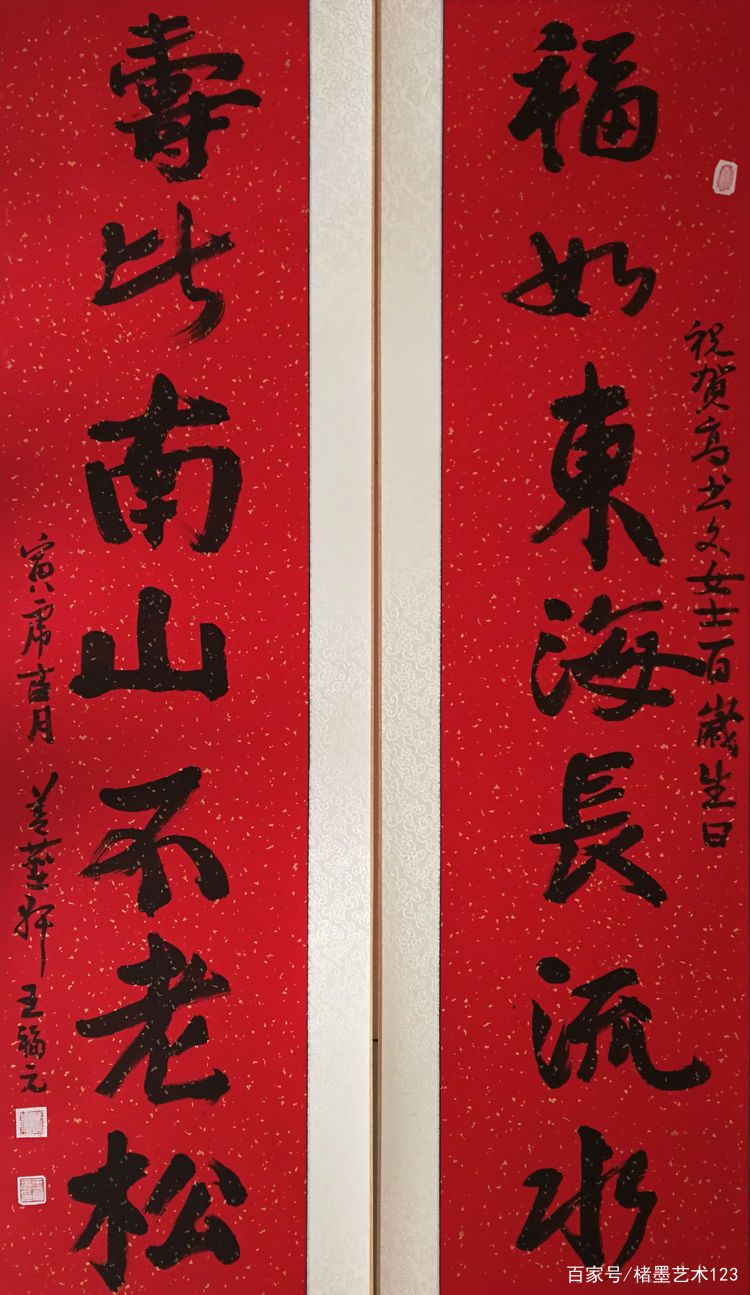 福如東海長流水
祝賀高書文女士百歲生日
壽比南山不老松
寅虎吉月
王福元
百家号/楮墨艺术123